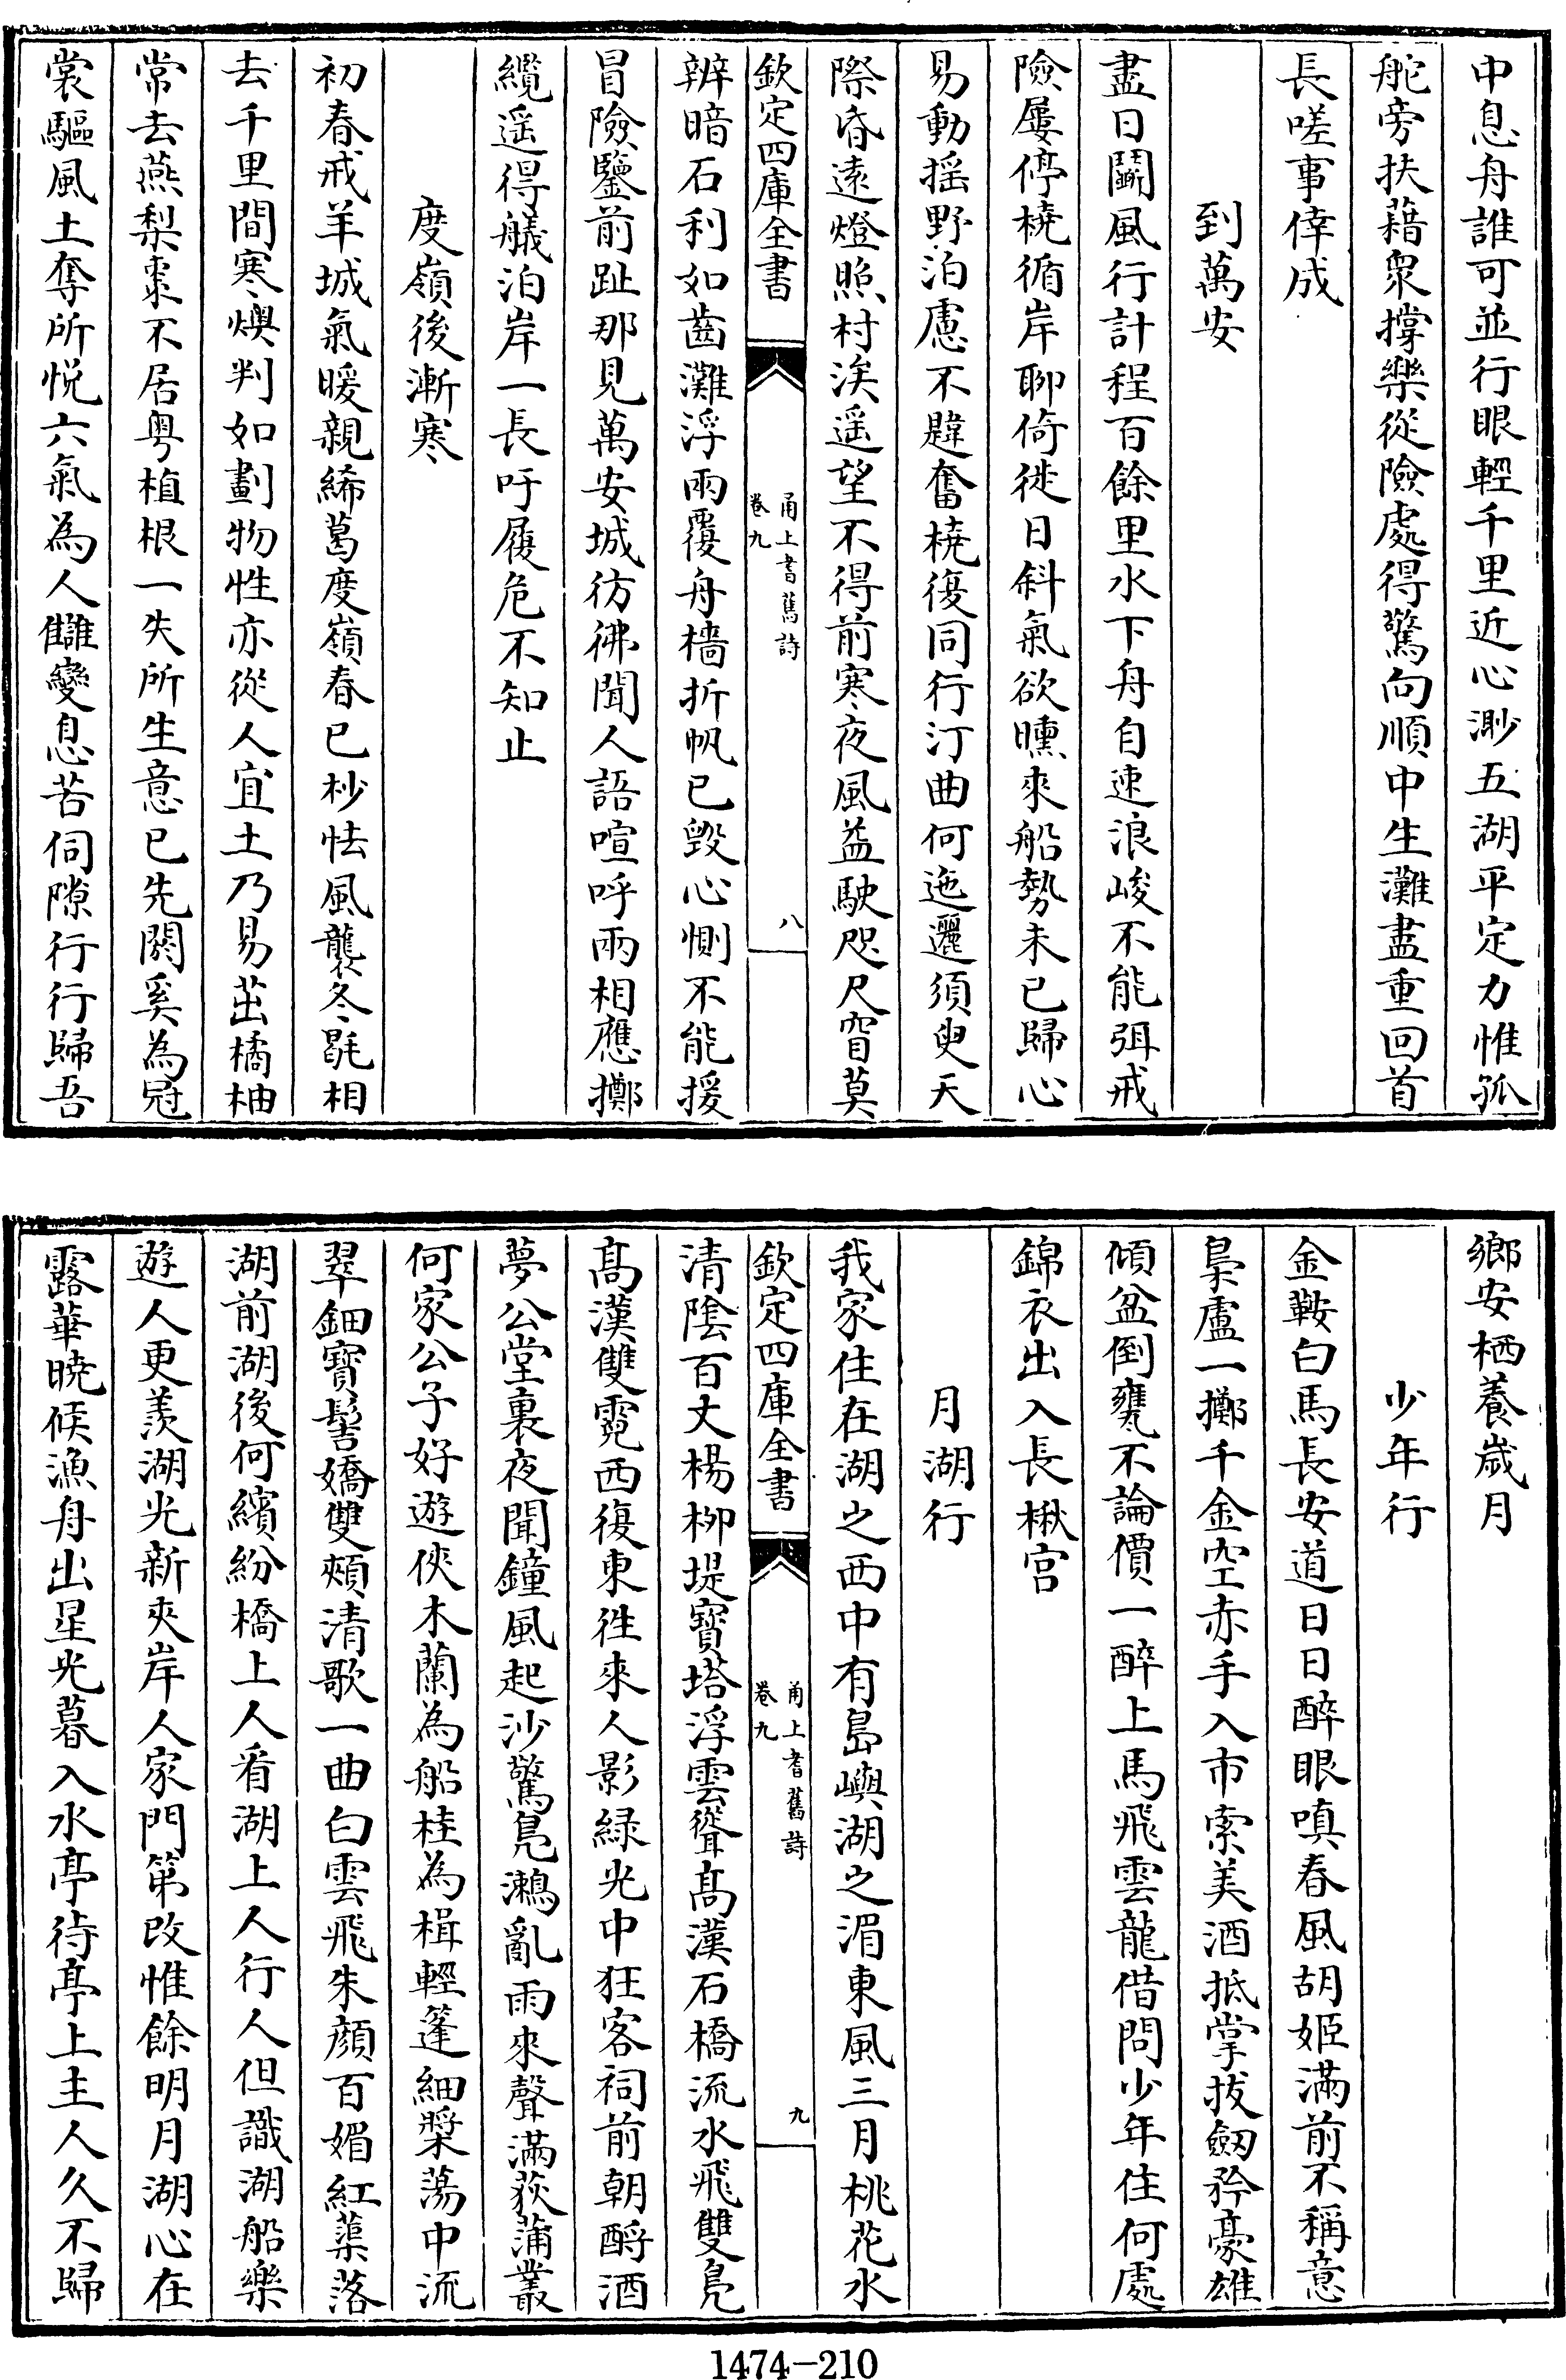 中息舟誰可並行眼輕千里近心渺五湖平定力惟孤
舵旁扶藉衆撐樂從險處得驚向順中生灘盡重回首
長嗟事倖成
到萬安
盡日鬭風行計程百餘里水下舟自速浪峻不能弭戒
險屢停橈循岸聊倚徙日斜氣欲曛來船勢未已歸心
易動搖野泊慮不韙奮橈復同行汀曲何迤邐須臾天
際昏遠燈照村涘遥望不得前寒夜風益駛咫尺窅莫
欽定四庫全書
甬上耆舊詩
卷九
八
辨暗石利如齒灘浮兩覆舟檣折帆已毀心惻不能援
冒險鑒前趾那見萬安城彷彿聞人語喧呼兩相應擲
纜遥得艤泊岸一長吁履危不知止
度嶺後漸寒
初春戒羊城氣暖親絺葛度嶺春已杪怯風襲冬毼相
去千里間寒燠判如劃物性亦從人宜土乃易茁橘柚
常去燕梨棗不居粤植根一失所生意已先閼奚為冠
裳驅風土奪所悦六氣為人讎變息苦伺隙行行歸吾
鄉安栖養歲月
少年行
金鞍白馬長安道日日醉眼嗔春風胡姬滿前不稱意
梟盧一擲千金空赤手入市索美酒抵掌拔劒矜豪雄
傾盆倒甕不論價一醉上馬飛雲龍借問少年住何處
錦衣出入長楸宫
月湖行
我家住在湖之西中有島嶼湖之湄東風三月桃花水
欽定四庫全書
甬上耆舊詩
卷九
九
清陰百丈楊柳堤寳塔浮雲聳髙漢石橋流水飛雙鳬
髙漢雙霓西復東徃來人影緑光中狂客祠前朝酹酒
夢公堂裏夜聞鐘風起沙驚鳬鷀亂雨來聲滿荻蒲叢
何家公子好遊俠木蘭為船桂為楫輕篷細槳蕩中流
翠鈿寳髻嬌雙頰清歌一曲白雲飛朱顔百媚紅蕖落
湖前湖後何繽紛橋上人看湖上人行人但識湖船樂
遊人更羨湖光新夾岸人家門第改惟餘明月湖心在
露華曉候漁舟出星光暮入水亭待亭上主人久不歸
1474-210